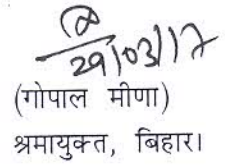 29/03/17
(गोपाल मीणा)
श्रमायुक्त, बिहार।